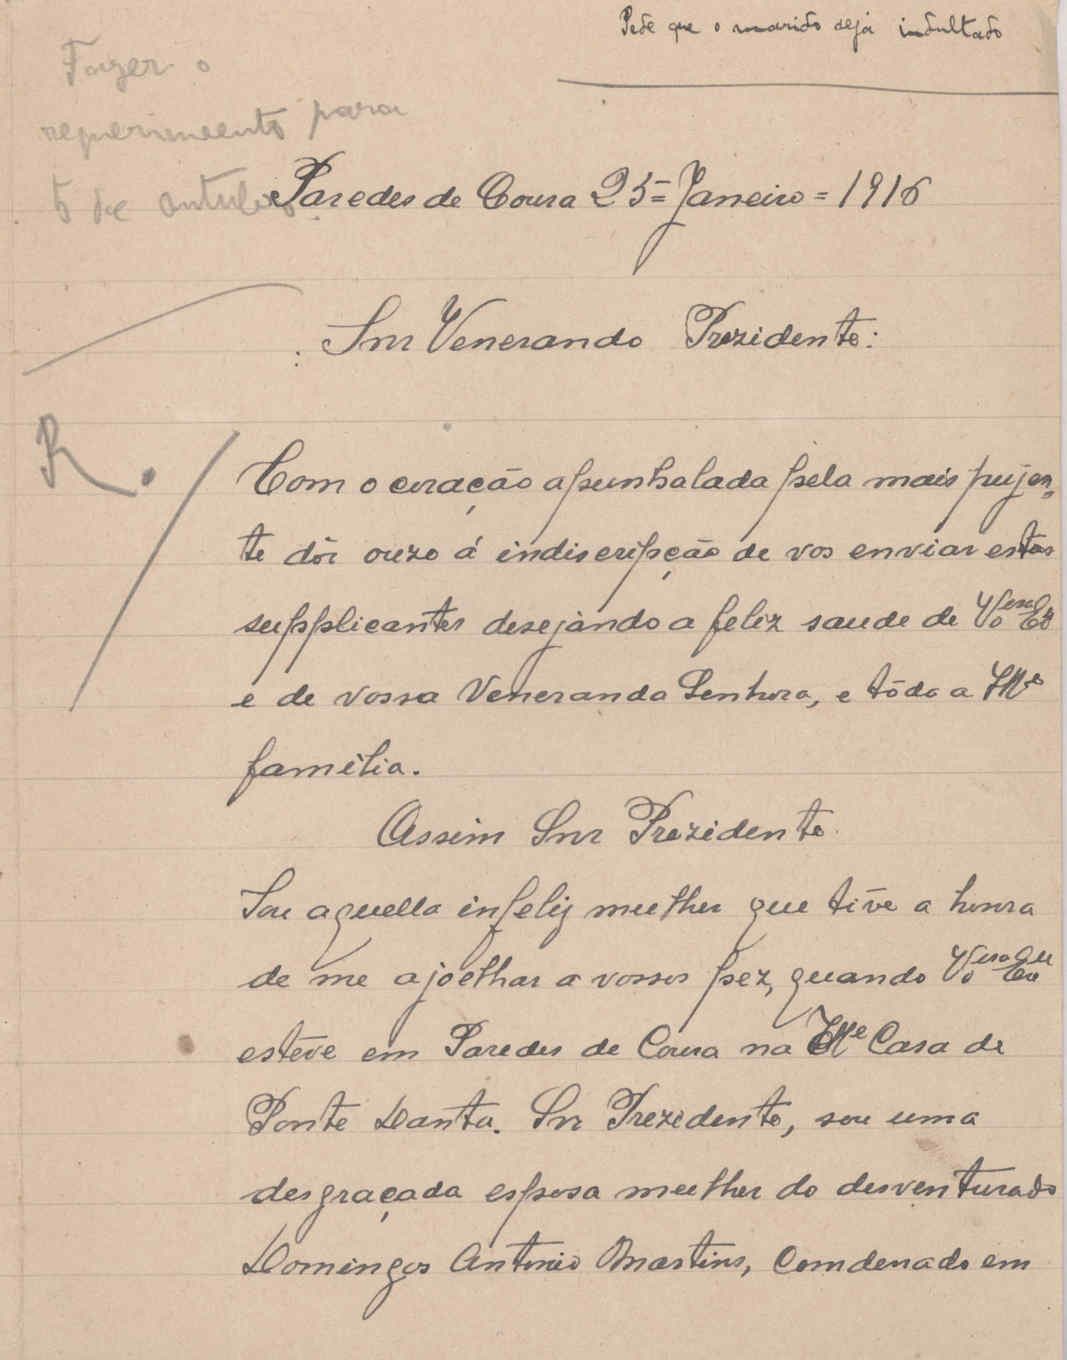 Pede que o marido seja indultado
Fazer o
requerimento para
5 de outubro.
Paredes de Coura 25 = Janeiro = 1916
: Snr Venerando Prezidente:
R.
Com o coração apunhalada pela mais pujen,
te dôr ouzo á indiscripção de vos enviar estas
supplicantes desejando a feliz saude de
e de vossa Veneranda Senhora, e tôda a
familia.
Assim Snr Prezidente.
Sou aquella infeliz mulher que tive a honra
de me ajoelhar a vossos pez, quando
estêve em Paredes de Coura na Casa de
Ponte Danta. Snr Prezidente, sou uma
desgraçada esposa mulher do desventurado
Domingos Antonio Martins, Comdenado em